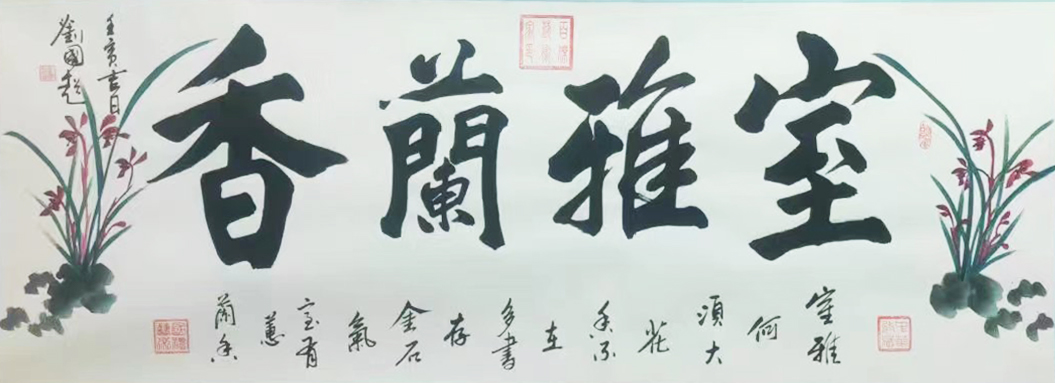 室雅蘭香
室雅
何
須大
花
香不
在
多書
存
金石
氣
室有
蕙
蘭香
壬寅吉日
劉國